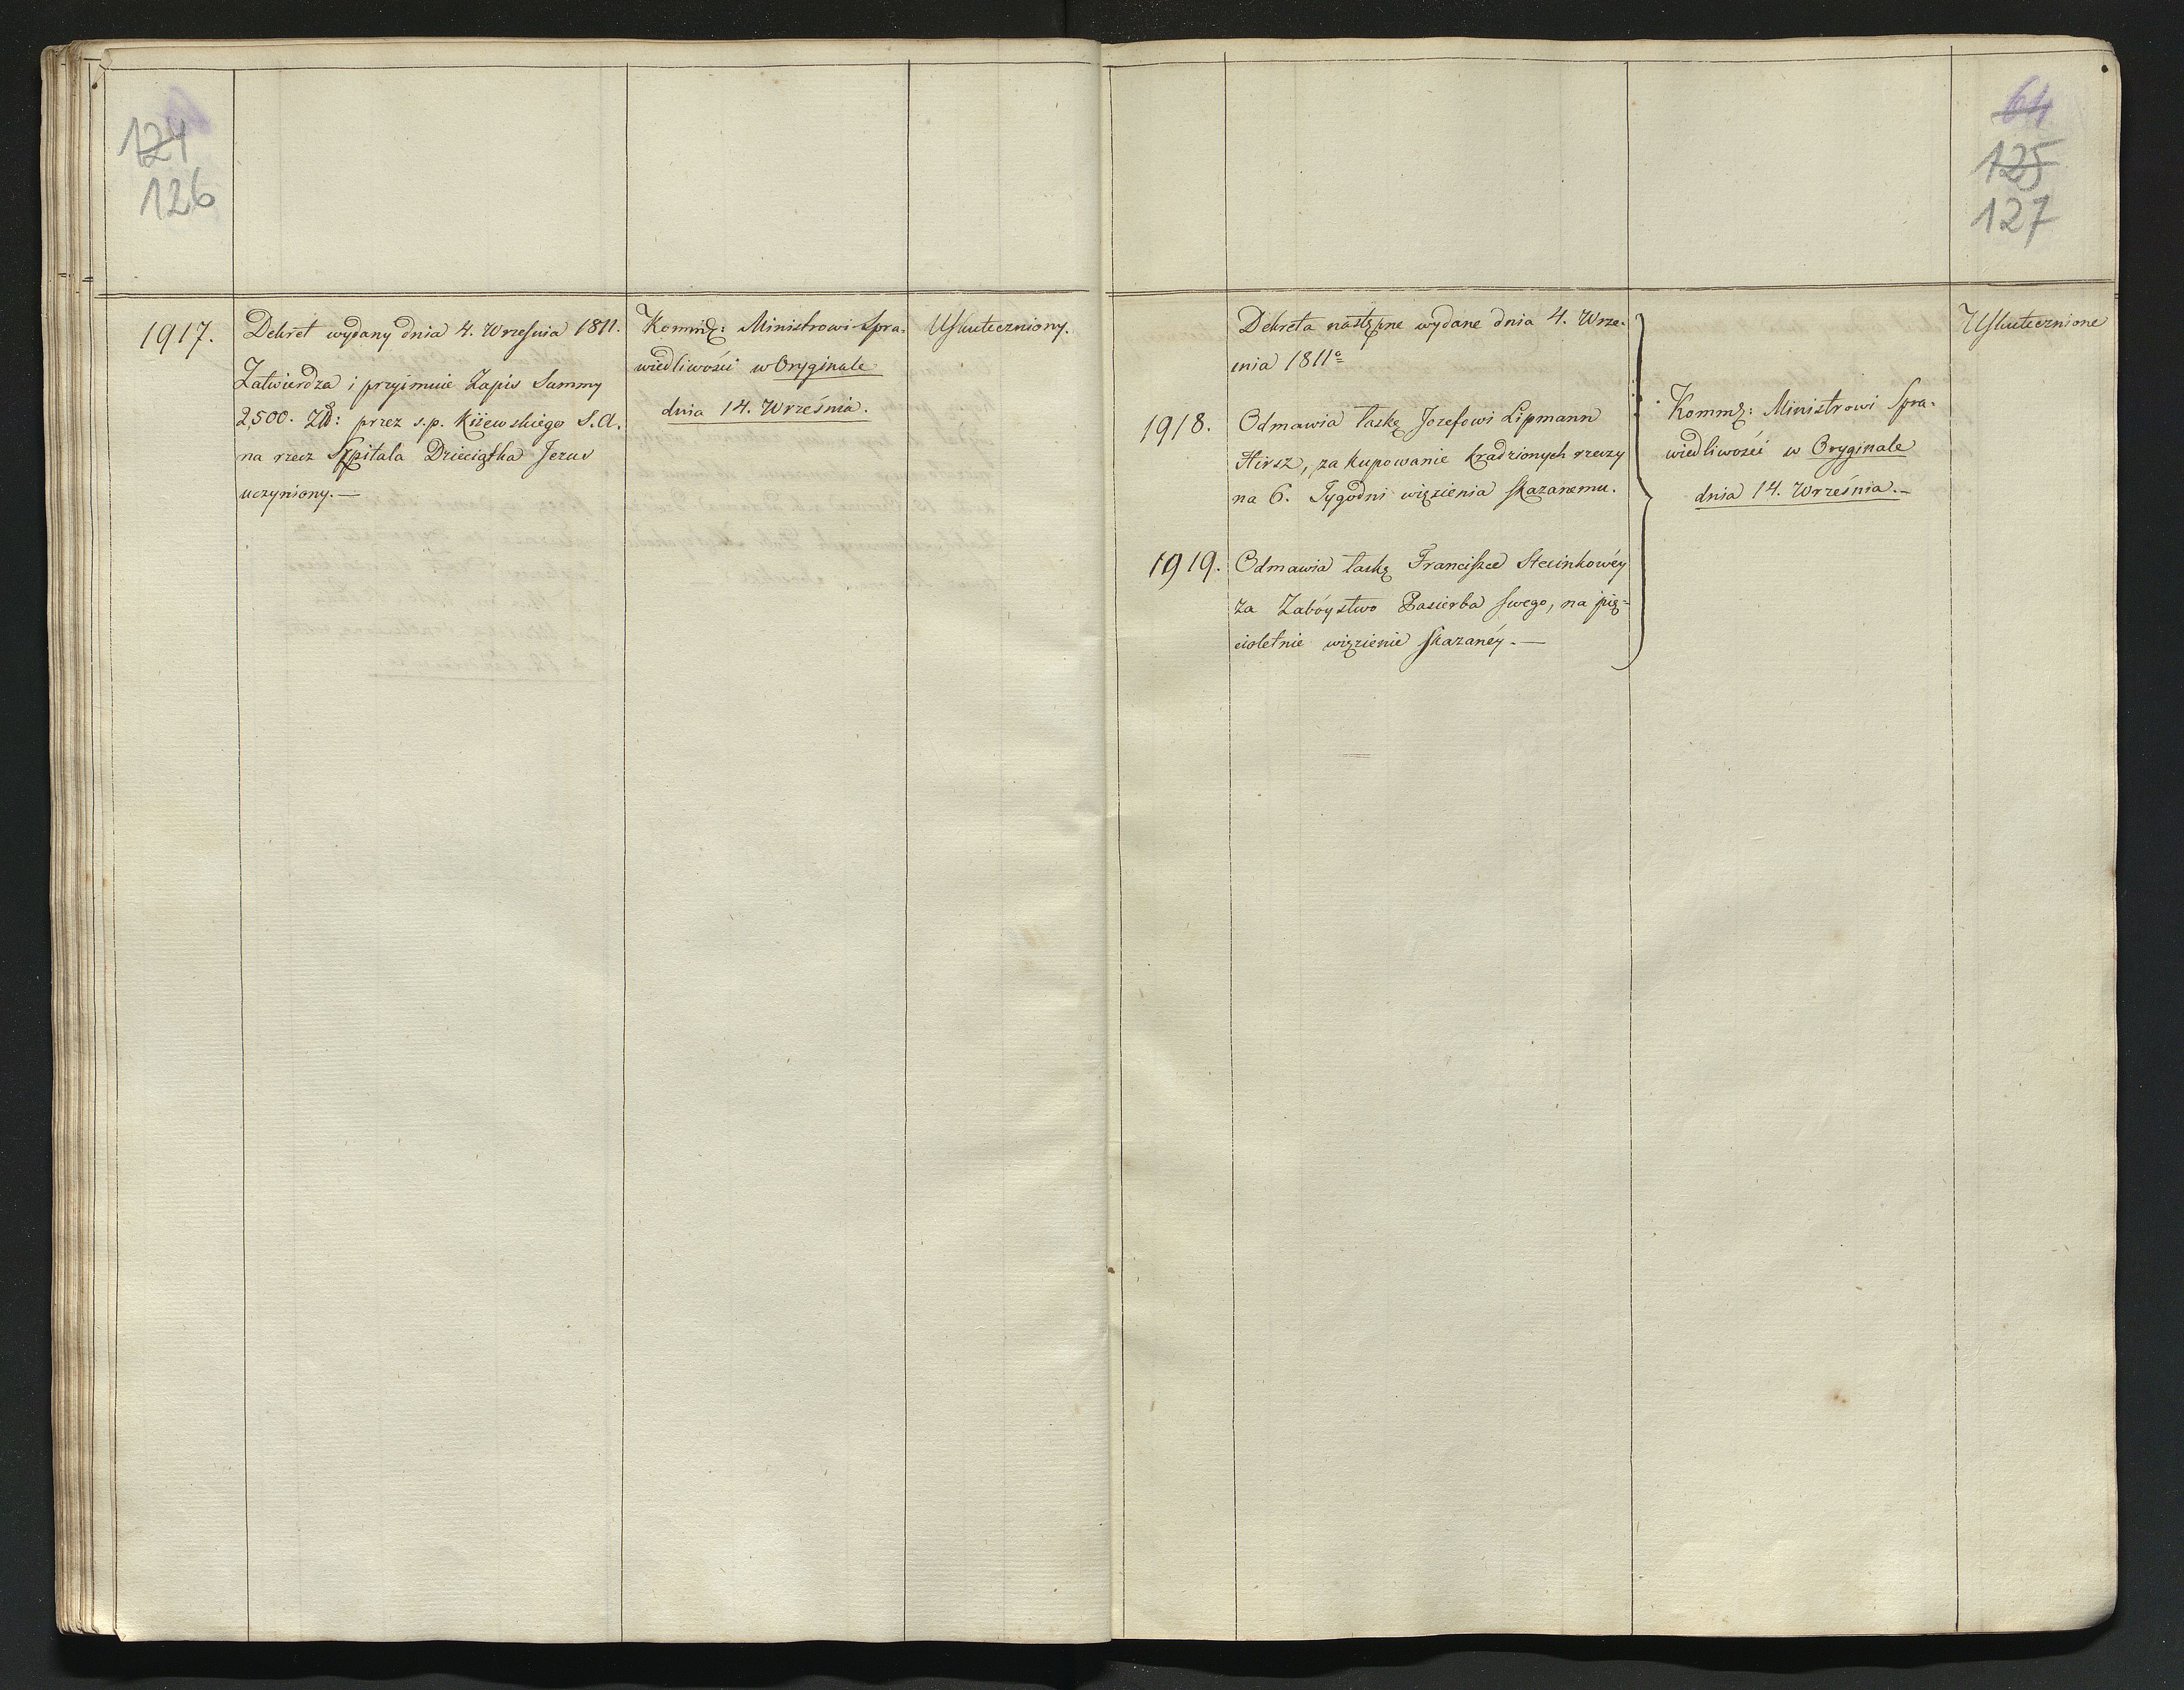 124
126
1917.
Dekret wydany dnia 4. Września 1811.
Zatwierdza i przyimuie Zapis Summy
2,500. Zł: przez s.p. Kiiewskiego S. A.
na rzecz Szpitala Dzieciątka Jezus
uczyniony.—
Kommz: Ministrowi Spra-
wiedliwości w Oryginale
dnia 14. Września.
Uskuteczniony.
64
125
127
Dekreta następne wydane dnia 4. Wrze-
śnia 1811o
1918.
Odmawia łaskę Jozefowi Lipmann
Hirsz, za kupowanie kradzionych rzeczy
na 6. Tygodni więzienia skazanemu.
1919.
Odmawia łaskę Franciszce Stecinkowéy
za Zabóystwo Pasierba swego, na pię-
cioletnie więzienie skazanéy.—
Kommz: Ministrowi Spra-
wiedliwości w Oryginale
dnia 14. Września.—
Uskutecznione